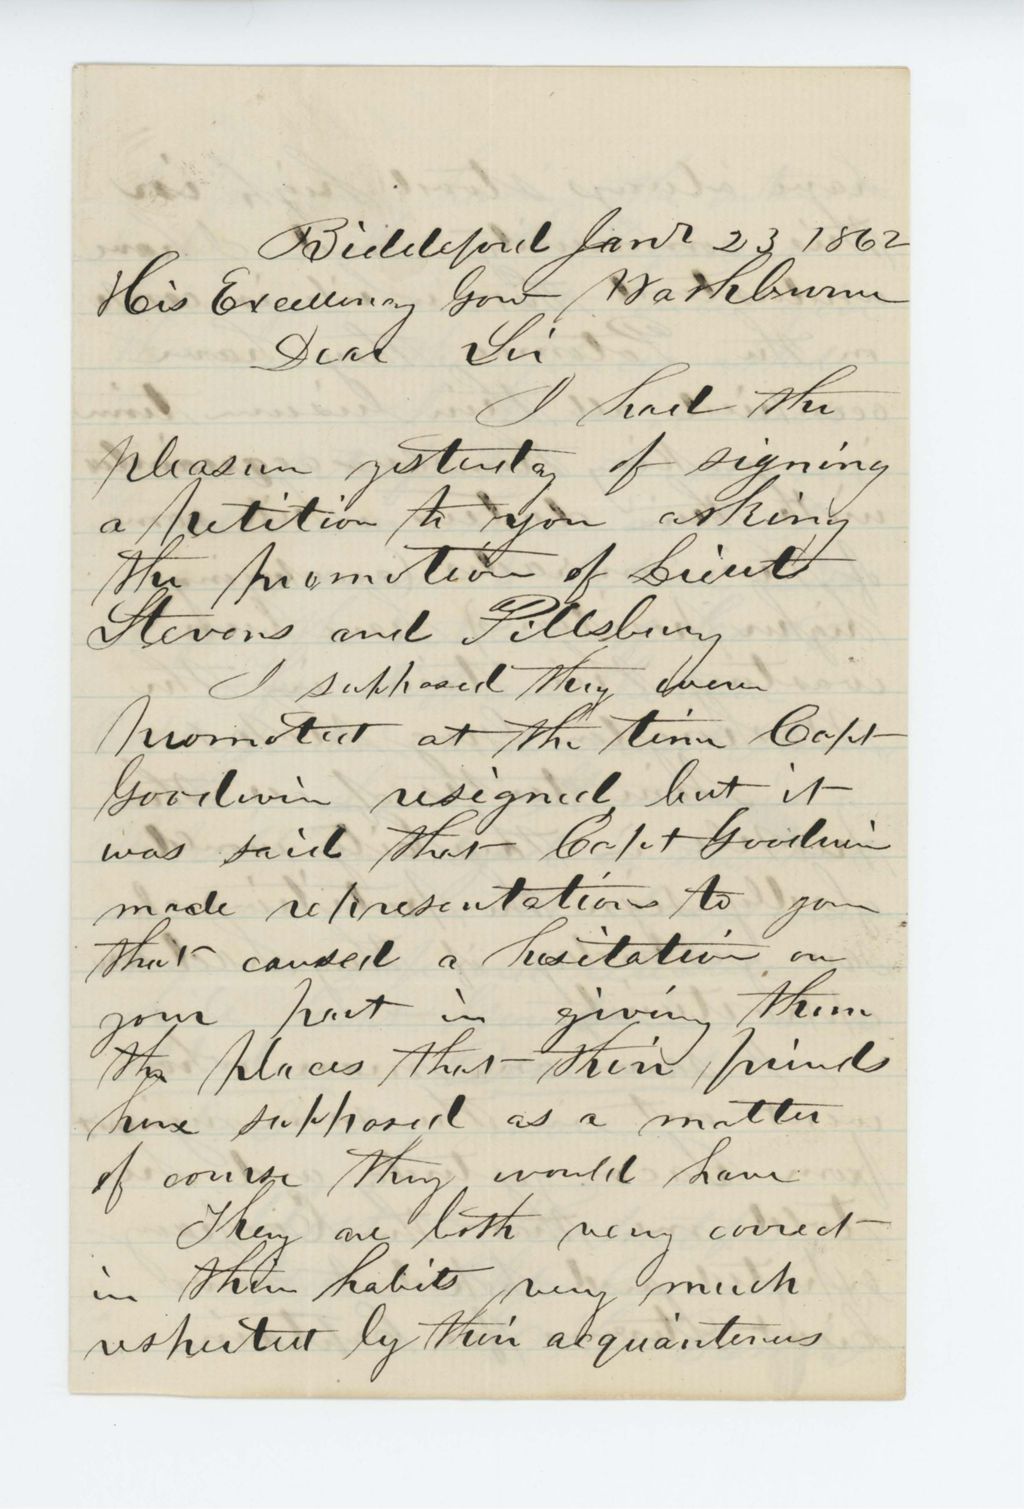 Biddeford Janr 23 1862
His Excellency Gov Washburn
Dear Sir
I had the
pleasure yesterday of signing
a petition to you asking
the promotion of Lieuts
Stevens and Pillsbury
I supposed they were
promoted at the time Capt
Goodwin resigned but it
was said that Capt Goodwin
made representations to you
that caused a hesitation on
your part in giving them
the places that their friends
have supposed as a matter
of course they would have
They are both very correct
in their habits very much
respected by their acquaintences